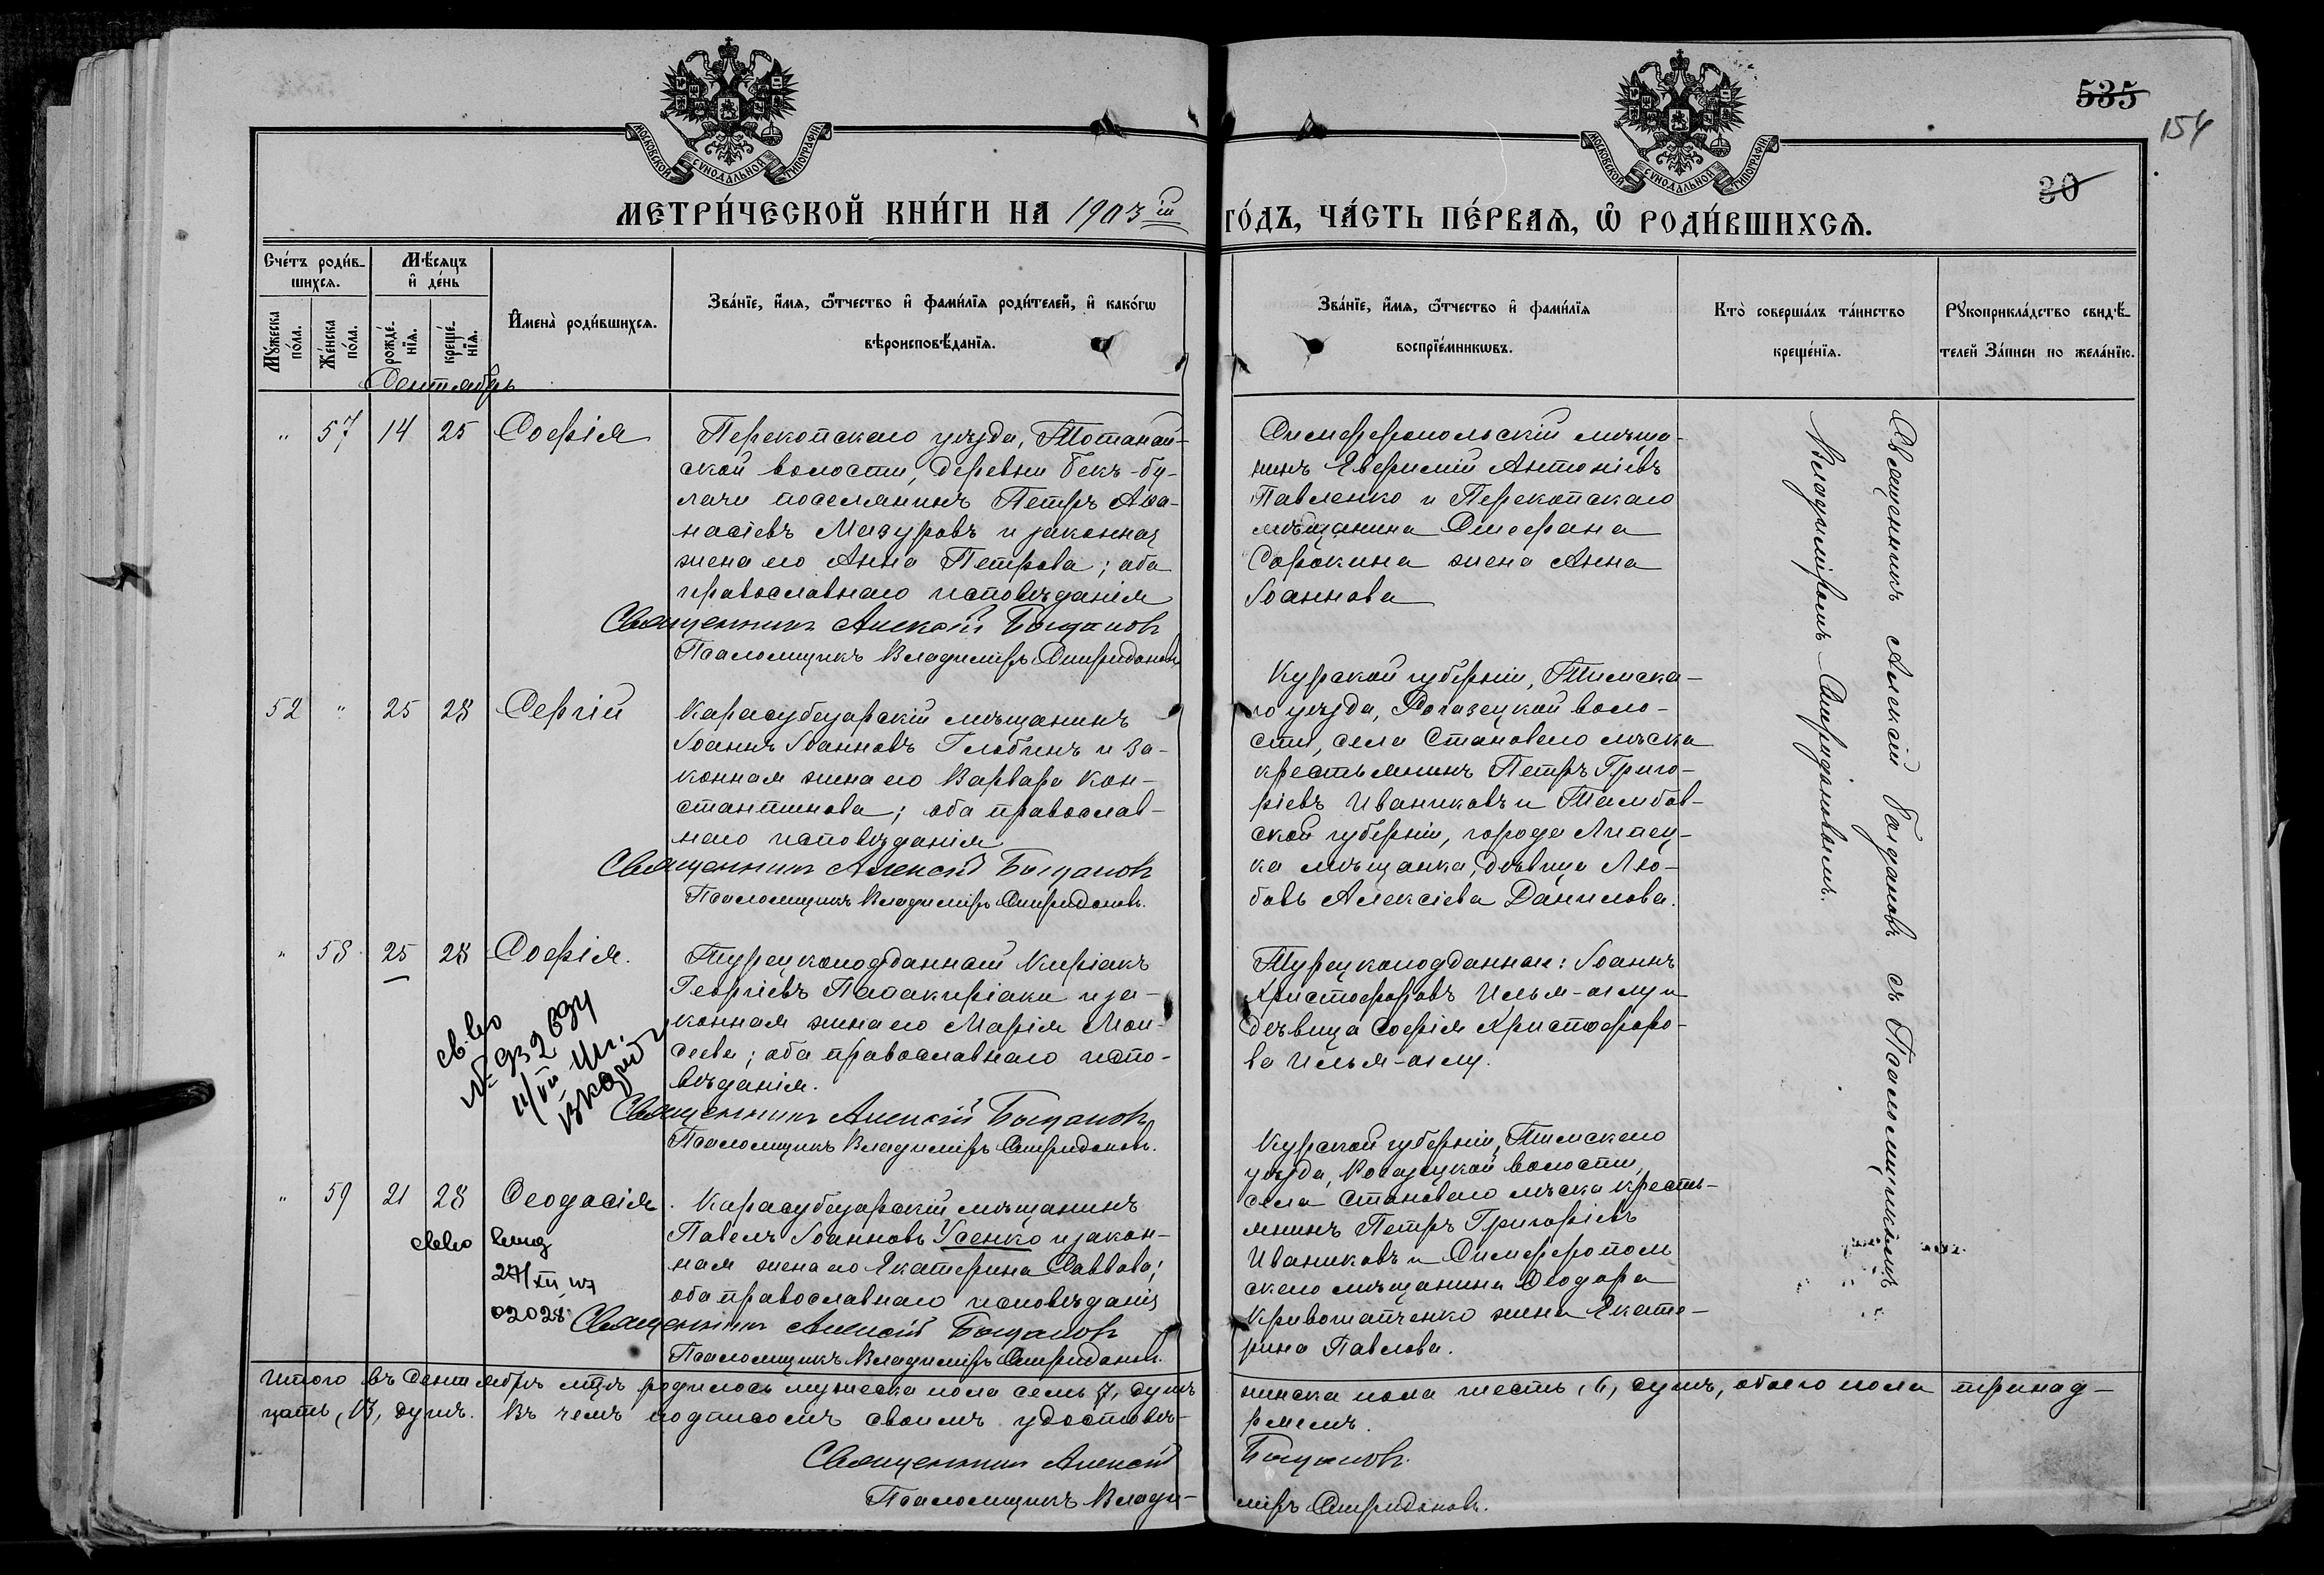 МОСКОВСКОЙ СѴНОДАЛЬНОЙ ТИПОГРАФІИ
МОСКОВСКОЙ СѴНОДАЛЬНОЙ ТИПОГРАФІИ
535
154
30
МЕТРИ́ЧЕСКОЙ КНИ́ГИ НА 1903 й ГО́ДЪ, ЧА́СТЬ ПЕ́РВАѦ, Ѽ РОДИ́ВШИХСѦ.
Сче́тъ роди́в-
шихсѧ.
Мѣ́сѧцъ
и҆ де́нь
Мꙋ́жеска
по́ла.
Же́нска
по́ла.
рожде́-
нїѧ.
креще́-
нїѧ.
И҆мена̀ роди́вшихсѧ.
Зва́нїе, и҆́мѧ, ѻ҆́тчество и҆ фами́лїѧ роди́телей, и҆ како́гѡ
вѣроисповѣ́данїѧ.
Зва́нїе, и҆́мѧ, ѻ҆́тчество и҆ фами́лїѧ
воспрїе́мникѡвъ.
Кто̀ соверша́лъ та́инство
креще́нїѧ.
Рꙋкоприкла́дство свидѣ́-
телей За́писи по жела́нїю.
Сентябрь
" 57 14 25 Софія
Перекопскаго уѣзда, Тотанай-
ской волости, деревни Бекъ-бу-
лачи поселянинъ Петръ Аѳа-
насіевъ Мазуровъ и законная
жена его Анна Петрова; оба
православнаго исповѣданія
Священникъ Алексій Богдановъ
Псаломщикъ Владиміръ Спиридоновъ
Симферопольскій мѣща-
нинъ Евфимій Антоніевъ
Павленко и Перекопскаго
мѣщанина Стефана
Сорокина жена Анна
Іоаннова
52 " 25 28 Сергій
Карасубазарскій мѣщанинъ
Іоаннъ Іоанновъ Глобинъ и за-
конная жена его Варвара Кон-
стантинова; оба православ-
наго исповѣданія
Священникъ Алексій Богдановъ
Псаломщикъ Владиміръ Спиридоновъ.
Курской губерніи, Тимска-
го уѣзда, Рогазецкой воло-
сти, села Становаго лѣска
крестьянинъ Петръ Григо-
ріевъ Иваниковъ и Тамбов-
ской губерніи, города Липец-
ка мѣщанка, дѣвица Лю-
бовь Алексіева Данилова.
" 58 25 28 Софія.
Турецкоподданный Киріакъ
Георгіевъ Папакиріаки и за-
конная жена его Марія Мои-
сеева; оба православнаго испо-
вѣданія.
Священникъ Алексій Богдановъ
Псаломщикъ Владиміръ Спиридоновъ.
Турецкоподданные: Іоаннъ
Христофоровъ Ильм-оглу и
дѣвица Софія Христофоро-
ва Ильм-оглу.
св. во
" 59 21 28 Ѳеодосія.
Карасубазарскій мѣщанинъ
Павелъ Іоанновъ Усенко и закон-
ная жена его Екатерина Саввова;
оба православнаго исповѣданія
Священникъ Алексій Богдановъ
Псаломщикъ Владиміръ Спиридоновъ.
св-во выд
02028
Курской губерніи, Тимскаго
уѣзда, Рогазецкой волости,
села Становаго лѣска кресть-
янинъ Петръ Григоріевъ
Иваниковъ и Симферополь
скаго мѣщанина Ѳеодора
Кривошапченко жена Екате-
рина Павлова.
Священникъ Алексій Богдановъ съ Псаломщикомъ
Владиміромъ Спиридоновымъ.
Итого въ Сентябрѣ мцѣ родилось мужеска пола семь 7, душъ женска пола шесть, 6, душъ, обоего пола тринад-
цать, 13, душъ. Въ чемъ подписомъ своимъ удостовѣ-
ряемъ.
Священникъ Алексій Богдановъ.
Псаломщикъ Влади-
міръ Спиридоновъ.